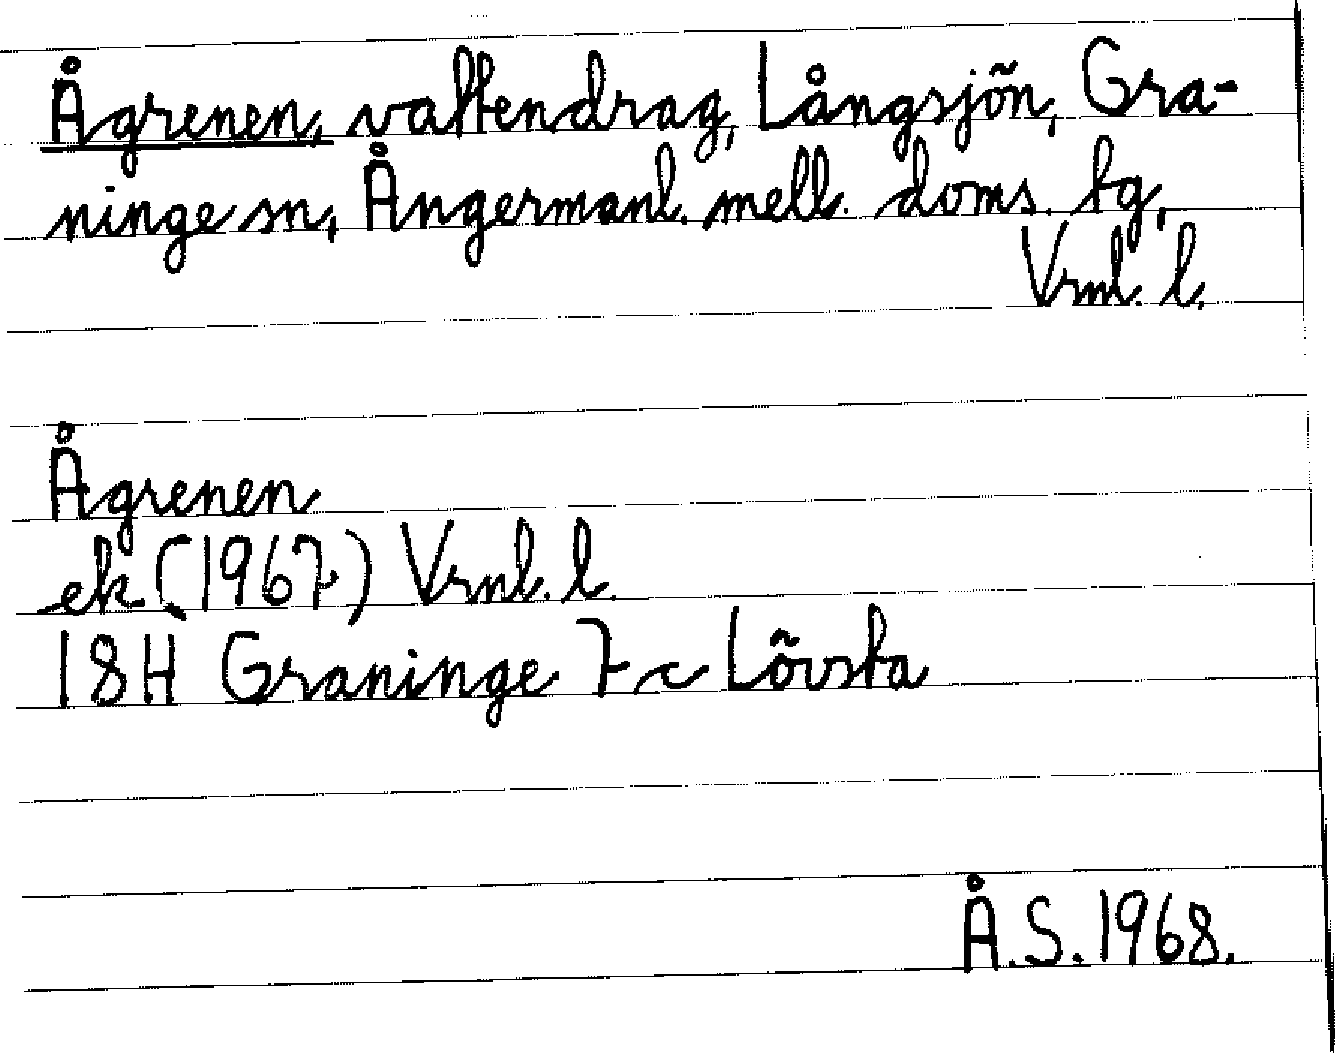 Ågrenen, vattendrag, Långsjön, Gra-
ninge sn, Ångermanl. mell. doms. tg,
Vrnl. l.
Ågrenen
ek (1967) Vrnl. l.
18H Graninge 7 c Lövsta
Å.S. 1968.